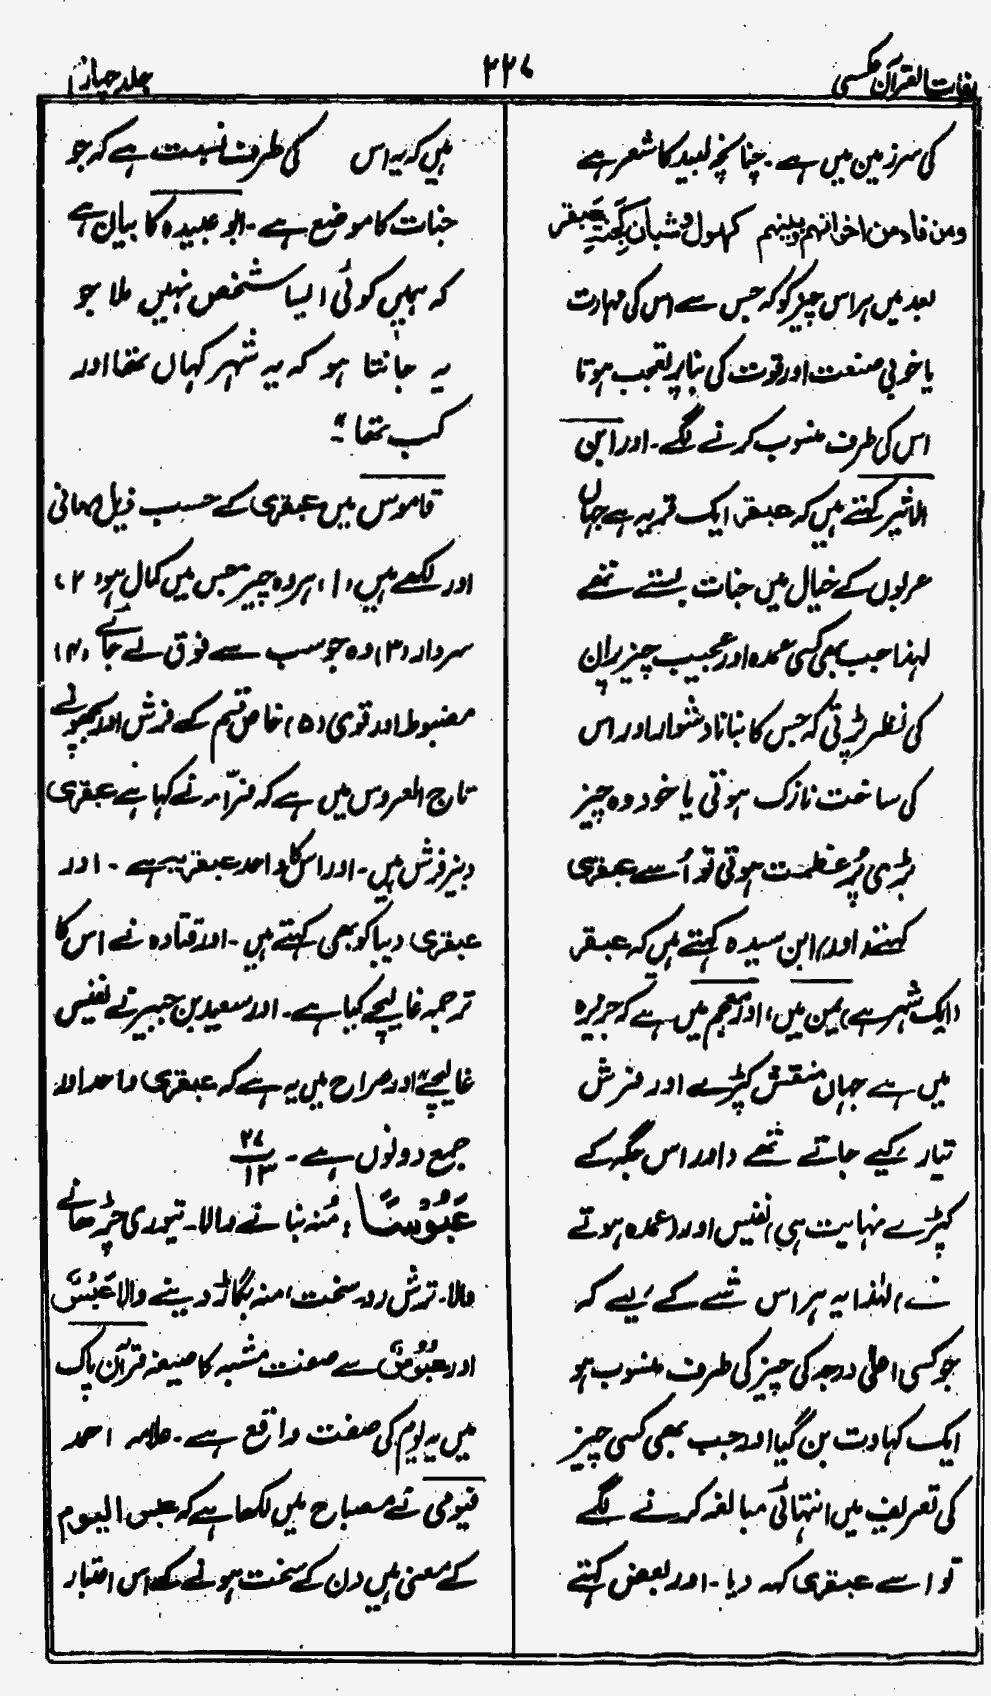 لغات القرآن عکسی
۲۲۷
جلد چہارم
کی سرزمین میں ہے۔ چنانچہ لبید کا شعر ہے
ومن فاد من اخوانہم وبنیہم کہول وشبان کجنۃ عبقر
بعد میں ہر اس چیز کو کہ جس سے اس کی مہارت
یا خوبی صنعت اور قوت کی بنا پر تعجب ہوتا
اس کی طرف منسوب کرنے لگے۔ اور ابن
الاثیر کہتے ہیں کہ عبقر ایک قریہ ہے جہاں
عربوں کے خیال میں جنات بستے تھے
لہذا جب بھی کسی عمدہ اور عجیب چیز پر ان
کی نظر پڑتی کہ جس کا بنانا دشوار اور اس
کی ساخت نازک ہوتی یا خود وہ چیز
بڑی پُر عظمت ہوتی تو اُسے عبقری
کہتے، اور ابن سیدہ کہتے ہیں کہ عبقر
(ایک شہر ہے) یمن میں، اور معجم میں ہے کہ جزیرہ
میں ہے جہاں منقش کپڑے اور فرش
تیار کیے جاتے تھے (اور اس جگہ کے
کپڑے نہایت ہی نفیس اور عمدہ ہوتے
تھے) لہٰذا یہ ہر اس شے کے لیے کہ
جو کسی اعلیٰ درجہ کی چیز کی طرف منسوب ہو
ایک کہاوت بن گیا اور جب بھی کسی چیز
کی تعریف میں انتہائی مبالغہ کرنے لگے
تو اسے عبقری کہہ دیا۔ اور بعض کہتے
ہیں کہ یہ اس کی طرف نسبت ہے کہ جو
جنات کا موضع ہے۔ ابو عبیدہ کا بیان ہے
کہ ہمیں کوئی ایسا شخص نہیں ملا جو
یہ جانتا ہو کہ یہ شہر کہاں تھا اور
کب تھا"۔
قاموس میں عبقری کے حسب ذیل معانی
اور لکھے ہیں (۱) ہر وہ چیز جس میں کمال ہو (۲)
سردار (۳) وہ جو سب سے فوق لے جائے (۴)
مضبوط اور قوی (۵) خاص قسم کے فرش اور بچھونے
تاج العروس میں ہے کہ فرّاء نے کہا ہے عبقری
دبیز فرش ہیں۔ اور اس کا واحد عبقریہ ہے۔ اور
عبقری دیبا کو بھی کہتے ہیں۔ اور قتادہ نے اس کا
ترجمہ غالیچے کیا ہے۔ اور سعید بن جبیر نے نفیس
غالیچے" اور صراح میں یہ ہے کہ عبقری واحد اور
جمع دونوں ہے۔ ۲۷/۱۳
عَبُوْسًا: مُنہ بنانے والا۔ تیوری چڑھانے
والا۔ ترش رو، سخت، منہ بگاڑ دینے والا عَبْسٌ
اور عبُوْسٌ سے صفت مشبہ کا صیغہ قرآن پاک
میں یہ یوم کی صفت واقع ہے۔ علامہ احمد
فیومی نے مصباح میں لکھا ہے کہ عبس الیوم
کے معنی ہیں دن کے سخت ہونے کے، اس اعتبار